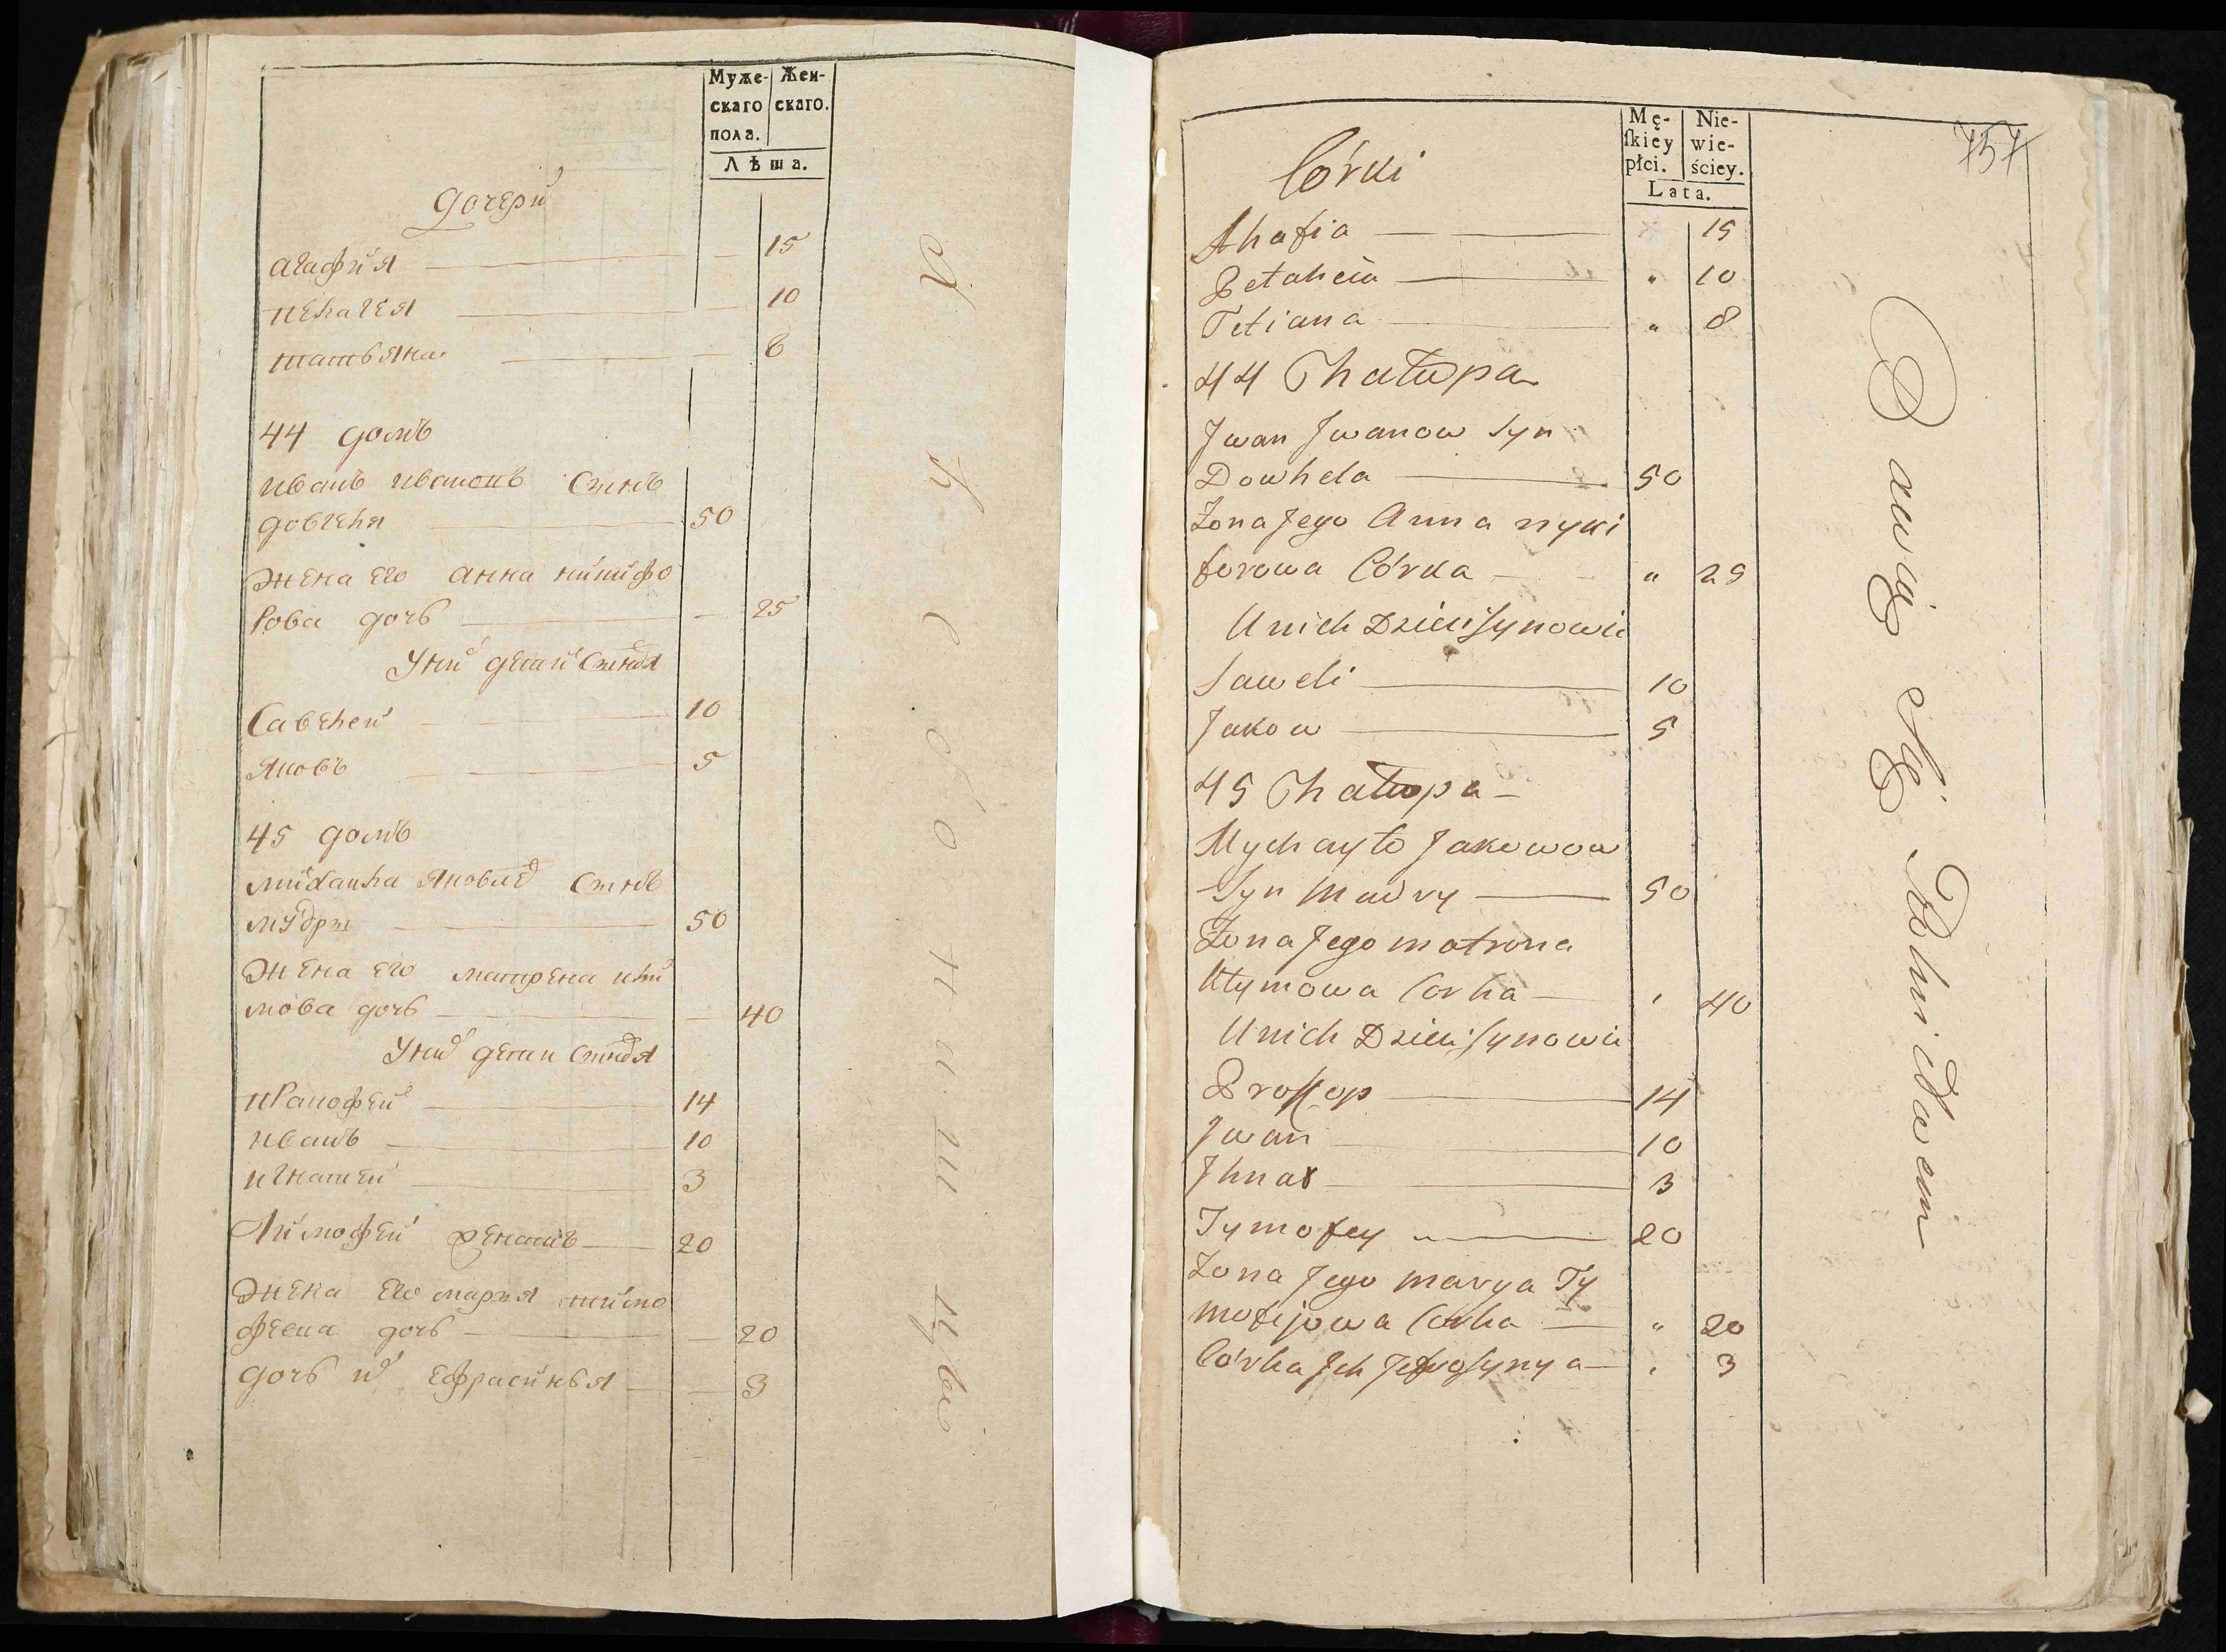 Муже- Жен-
скаго скаго.
пола.
Лѣта.
дочери
агафия — 15
пелагея — 10
татьяна — 8
44 домъ
иванъ ивановъ Сынъ
довгеля — 50
жена его анна никифо
рова дочь — 25
У них дети Сыновя
Савелей — 10
Яковъ — 5
45 домъ
михайла яковлев Сынъ
мудры — 50
жена его матрена кли
мова дочь — 40
У них дети Сыновя
иванъ — 10
игнатей — 3
Тимофей — 20
жена его мария тимо
феева дочь — 20
дочь их ефрасинья — 3
757
Mę- Nie-
ſkiey wie-
płci. ściey.
Lata.
Córki
Ahafia — 15
Pelaheia — " 10
Tetiana — " 8
44 Chałupa
Jwan Jwanow Syn
Dowhela — 50
Żona Jego Anna nyki
forowa Córka — " 25
U nich Dzieci Synowie
Saweli — 10
Jakow — 5
45 Chałupa —
Mychayło Jakowow
Syn Mudry — 50
Żona Jego matrona
Kłymowa Corka — " 40
U nich Dzieci Synowie
Prokop — 14
Jwan — 10
Jhnat — 3
Tymofey — 20
Żona Jego marya Ty
mofijowa Corka — " 20
Córka Jch Jefrosynya — " 3